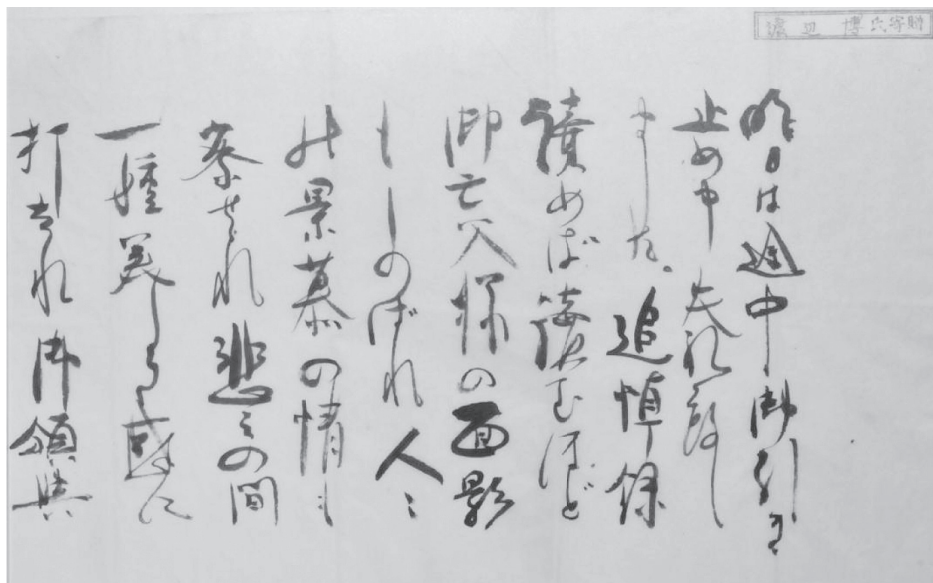 渡辺博氏寄贈
昨日は途中御引き
止め申失礼致し
ました。追悼録
読めば読むほど
御亡父様の面影
もしのばれ人々
の景慕の情も
察せられ悲しみの間
一種美しき感に
打たれ御領与